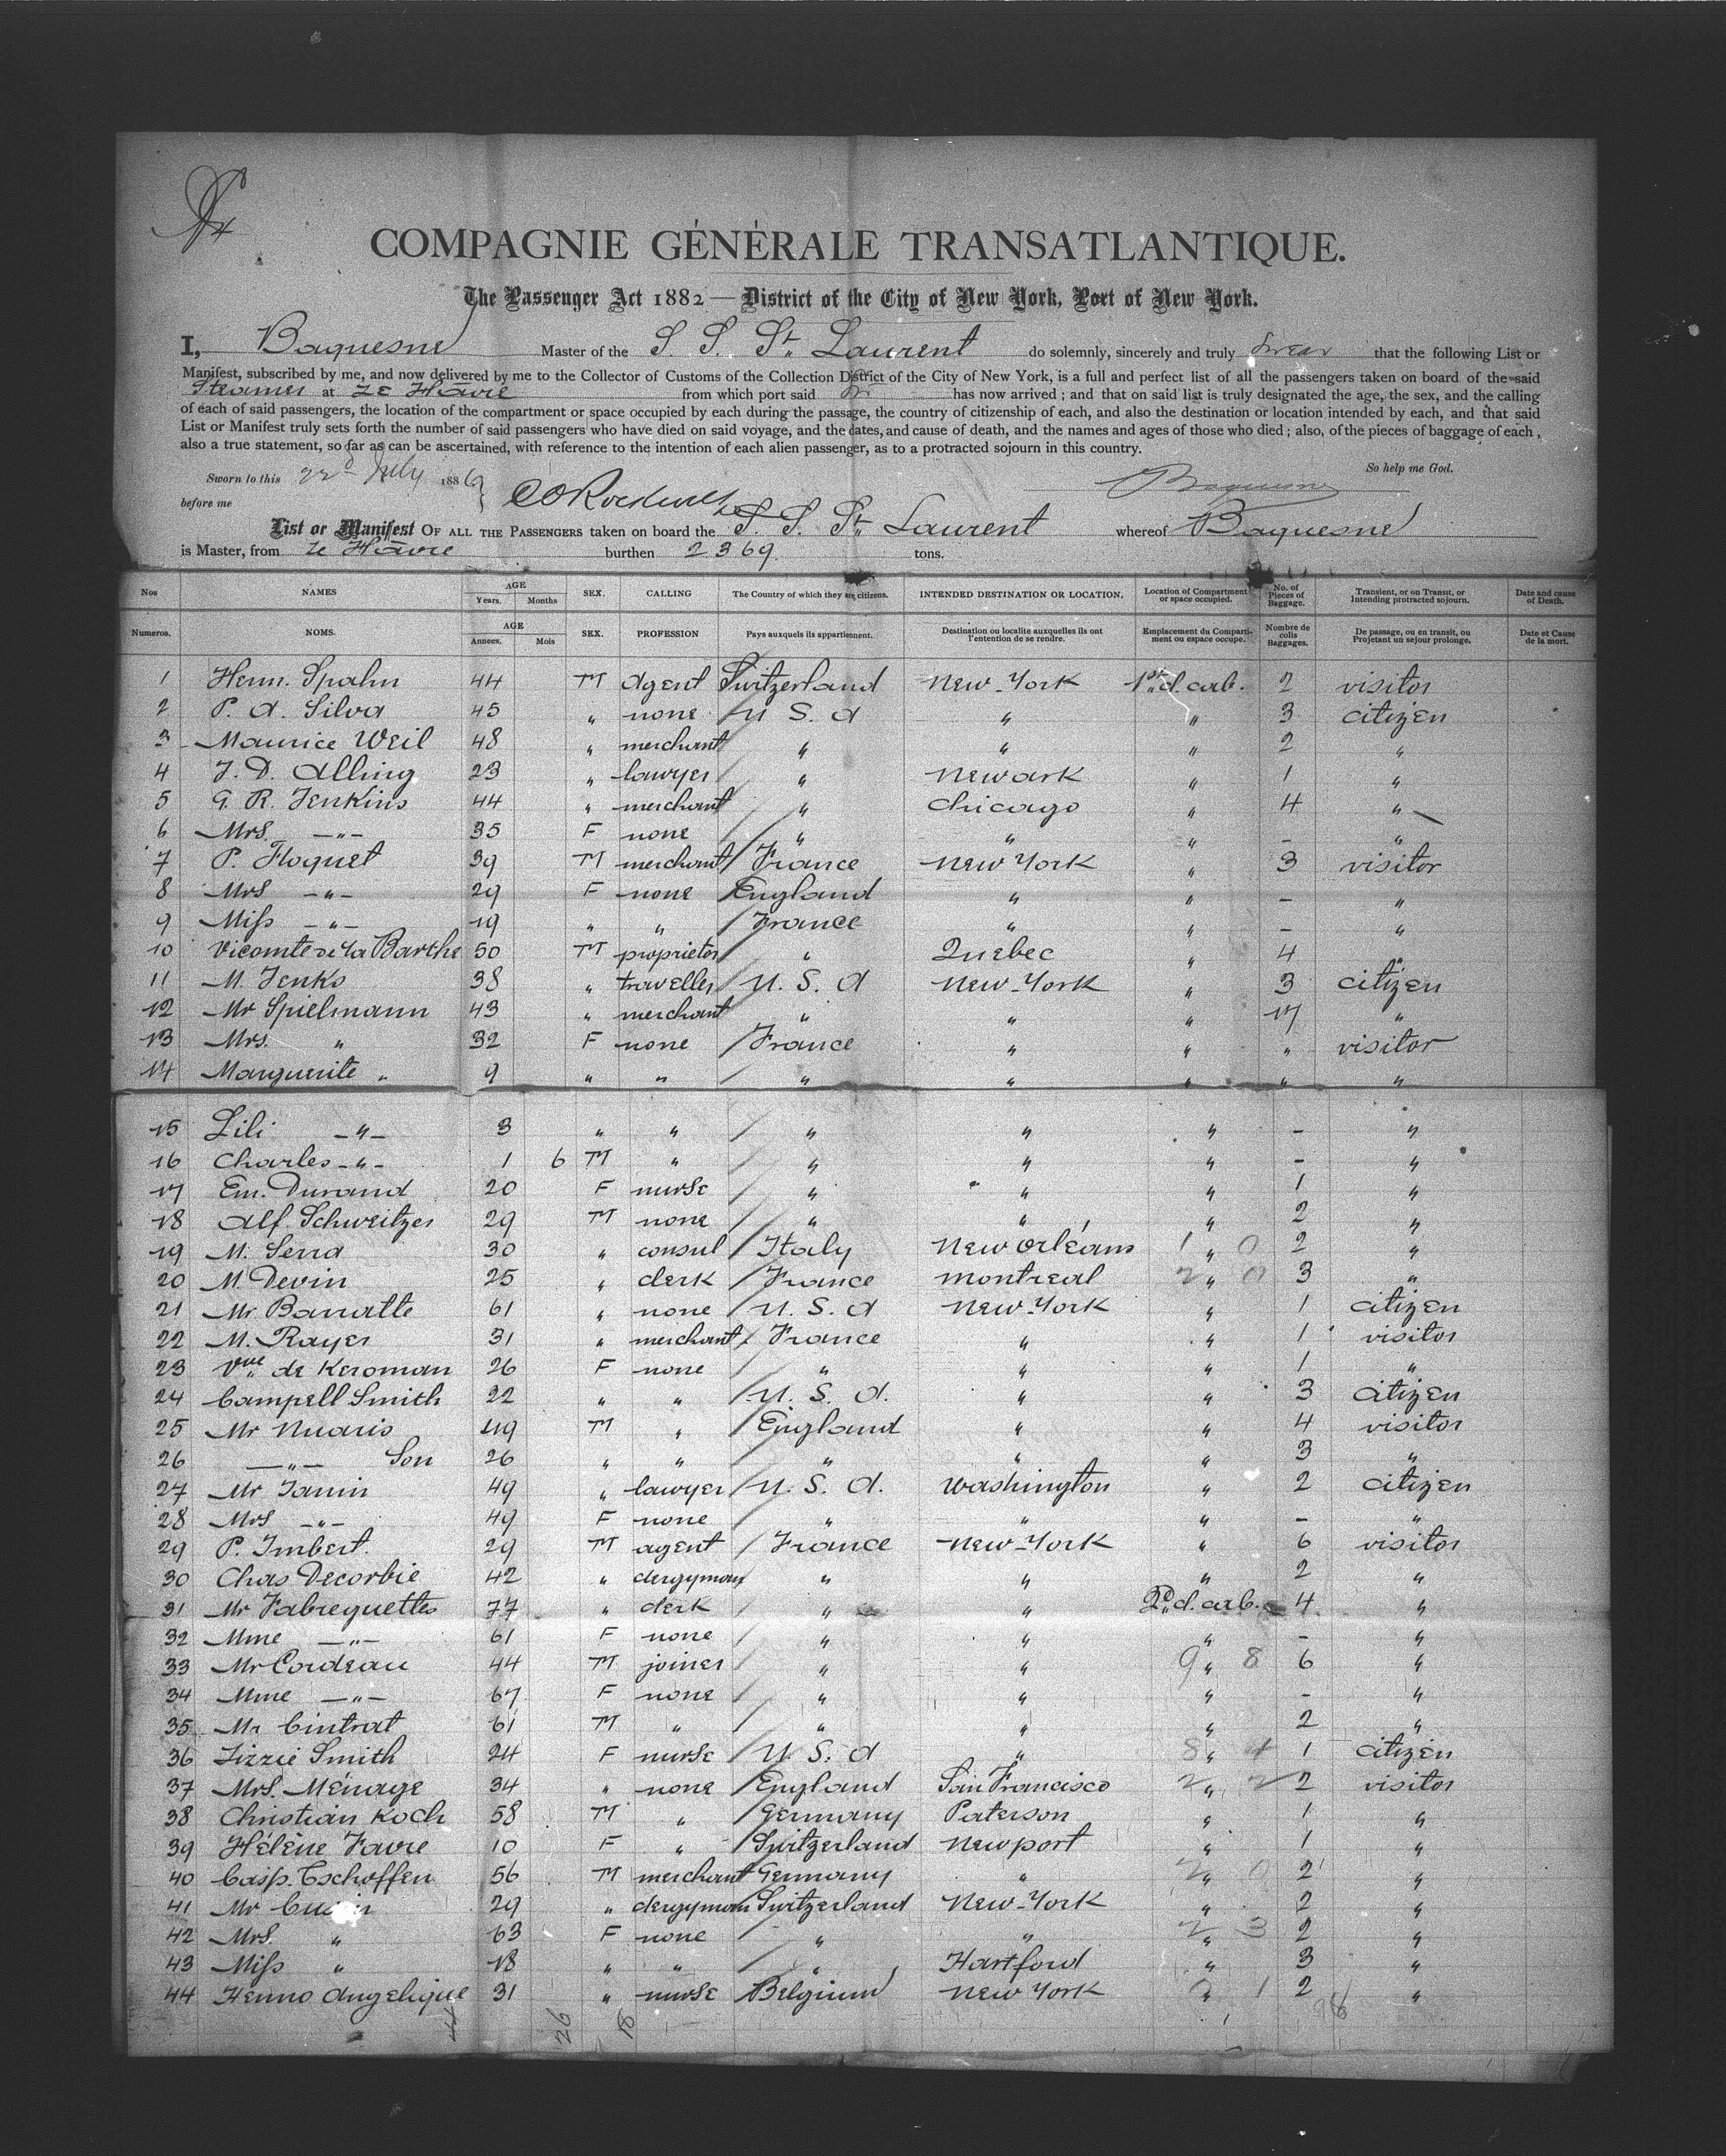 COMPAGNIE GÉNÉRALE TRANSATLANTIQUE.
The Passenger Act 1882 — District of the City of New York, Port of New York.
I, Baquesne Master of the S. S. St. Laurent do solemnly, sincerely and truly swear that the following List or
Manifest, subscribed by me, and now delivered by me to the Collector of Customs of the Collection District of the City of New York, is a full and perfect list of all the passengers taken on board of the said
Steamer at Le Hâvre from which port said has now arrived; and that on said list is truly designated the age, the sex, and the calling
of each of said passengers, the location of the compartment or space occupied by each during the passage, the country of citizenship of each, and also the destination or location intended by each, and that said
List or Manifest truly sets forth the number of said passengers who have died on said voyage, and the dates, and cause of death, and the names and ages of those who died; also, of the pieces of baggage of each,
also a true statement, so far as can be ascertained, with reference to the intention of each alien passenger, as to a protracted sojourn in this country.
Sworn to this 22d July 1886 So help me God.
before me Baquesne
List or Manifest OF ALL THE PASSENGERS taken on board the S. S. St. Laurent whereof Baquesne
is Master, from Le Hâvre burthen 2369 tons.
Nos NAMES AGE Years. Months SEX. CALLING The Country of which they are citizens. INTENDED DESTINATION OR LOCATION. Location of Compartment or space occupied. No. of Pieces of Baggage. Transient, or on Transit, or Intending protracted sojourn. Date and cause of Death.
Numeros. NOMS. AGE Annees. Mois SEX. PROFESSION Pays auxquels ils appartiennent. Destination ou localite auxquelles ils ont l'entention de se rendre. Emplacement du Compartiment ou espace occupe. Nombre de colis Baggages. De passage, ou en transit, ou Projetant un sejour prolonge. Date et Cause de la mort.
1 Henn. Spahn 44 M agent Switzerland New-York 1st d. cab. 2 visitor
2 P. A. Silva 45 " none U S. A " " 3 citizen
3 Maurice Weil 48 " merchant " " " 2 "
4 J. D. Alling 23 " lawyer " Newark " 1 "
5 G. R. Jenkins 44 " merchant " Chicago " 4 "
6 Mrs. —"— 35 F none " " " - "
7 P. Floquet 39 M merchant France New York " 3 visitor
8 Mrs —"— 29 F none England " " - "
9 Miss —"— 19 " " France " " - "
10 Vicomte de la Barthe 50 M proprietor " Quebec " 4 "
11 M. Jenks 38 " traveller U. S. A New-York " 3 citizen
12 Mr Spielmann 43 " merchant " " " 17 "
13 Mrs. " 32 F none France " " " visitor
14 Marguerite " 9 " " " " " " "
15 Lili —"— 3 " " " " " - "
16 Charles —"— 1 6 M " " " " - "
17 Em. Durand 20 F nurse " " " 1 "
18 Alf. Schweitzer 29 M none " " " 2 "
19 M. Serra 30 " consul Italy New Orléans 1 " 0 2 "
20 M. Devin 25 " clerk France Montreal 2 " 0 3 "
21 Mr Barratte 61 " none U. S. A New-York " 1 citizen
22 M. Rayer 31 " merchant France " " 1 visitor
23 Vve de Keroman 26 F none " " " 1 "
24 Campell Smith 22 " " U. S. A. " " 3 citizen
25 Mr Nuaris 49 M " England " " 4 visitor
26 —"— Son 26 " " " " " 3 "
27 Mr Janin 49 " lawyer U. S. A. Washington " 2 citizen
28 Mrs —"— 49 F none " " " - "
29 P. Imbert. 29 M agent France New-York " 6 visitor
30 Chas Decorbie 42 " clergyman " " " 2 "
31 Mr Fabreguettes 77 " clerk " " 2d d. cab. 4 "
32 Mme —"— 61 F none " " " - "
33 Mr Cordeau 44 M joiner " " 9 " 8 6 "
34 Mme —"— 67 F none " " " - "
35 Mr Cintrat 61 M " " " " 2 "
36 Lizzie Smith 24 F nurse U. S. A " 8 " 4 1 citizen
37 Mrs. Ménage 34 " none England San Francisco 2 " 2 2 visitor
38 Christian Koch 58 M " Germany Paterson " 1 "
39 Hélène Favre 10 F " Switzerland Newport " 1 "
40 Casp. Tschoffen 56 M merchant Germany " 2 " 0 2 "
41 Mr 29 " clergyman Switzerland New-York " 2 "
42 Mrs. " 63 F none " " 2 " 3 2 "
43 Miss " 18 " " " Hartford " 3 "
44 Henno Angelique 31 " nurse Belgium New York " 1 2 "
44 26 18 98